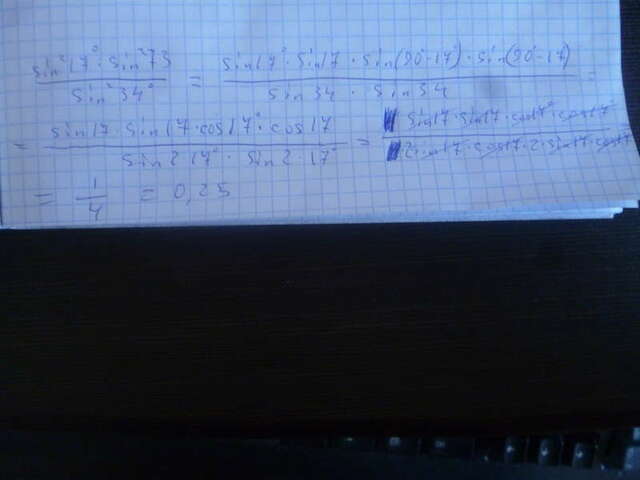 sin²17° · sin²73 / sin²34° = sin17° · sin17 · sin(90°-17°) · sin(90°-17) / sin34 · sin34 =
= sin17 · sin17 · cos17° · cos17 / sin2·17° · sin2·17° = sin17 · sin17 · cos17° · cos17° / 2sin17 · cos17 · 2 · sin17 · cos17
= 1/4 = 0,25